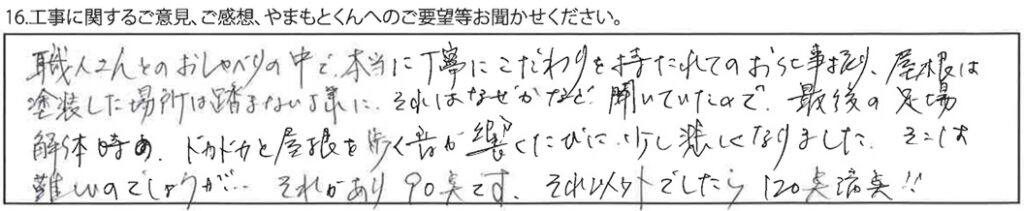 16.工事に関するご意見、ご感想、やまもとくんへのご要望等お聞かせください。
職人さんとのおしゃべりの中で、本当に丁寧にこだわりを持たれてのお仕事振り、屋根は
塗装した場所は踏まない様に、それはなぜかなど聞いていたので、最後の足場
解体時の、ドカドカと屋根を歩く音が響くたびに、少し悲しくなりました。そこは
難しいのでしょうが… それがあり90点です。それ以外でしたら120点満点!!